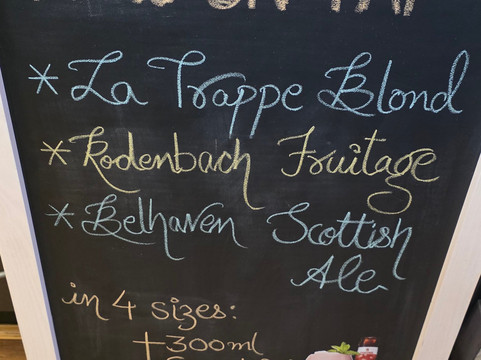 ON TAP
* La Trappe Blond
* Rodenbach Fruitage
* Belhaven Scottish
Ale
in 4 sizes:
+300ml